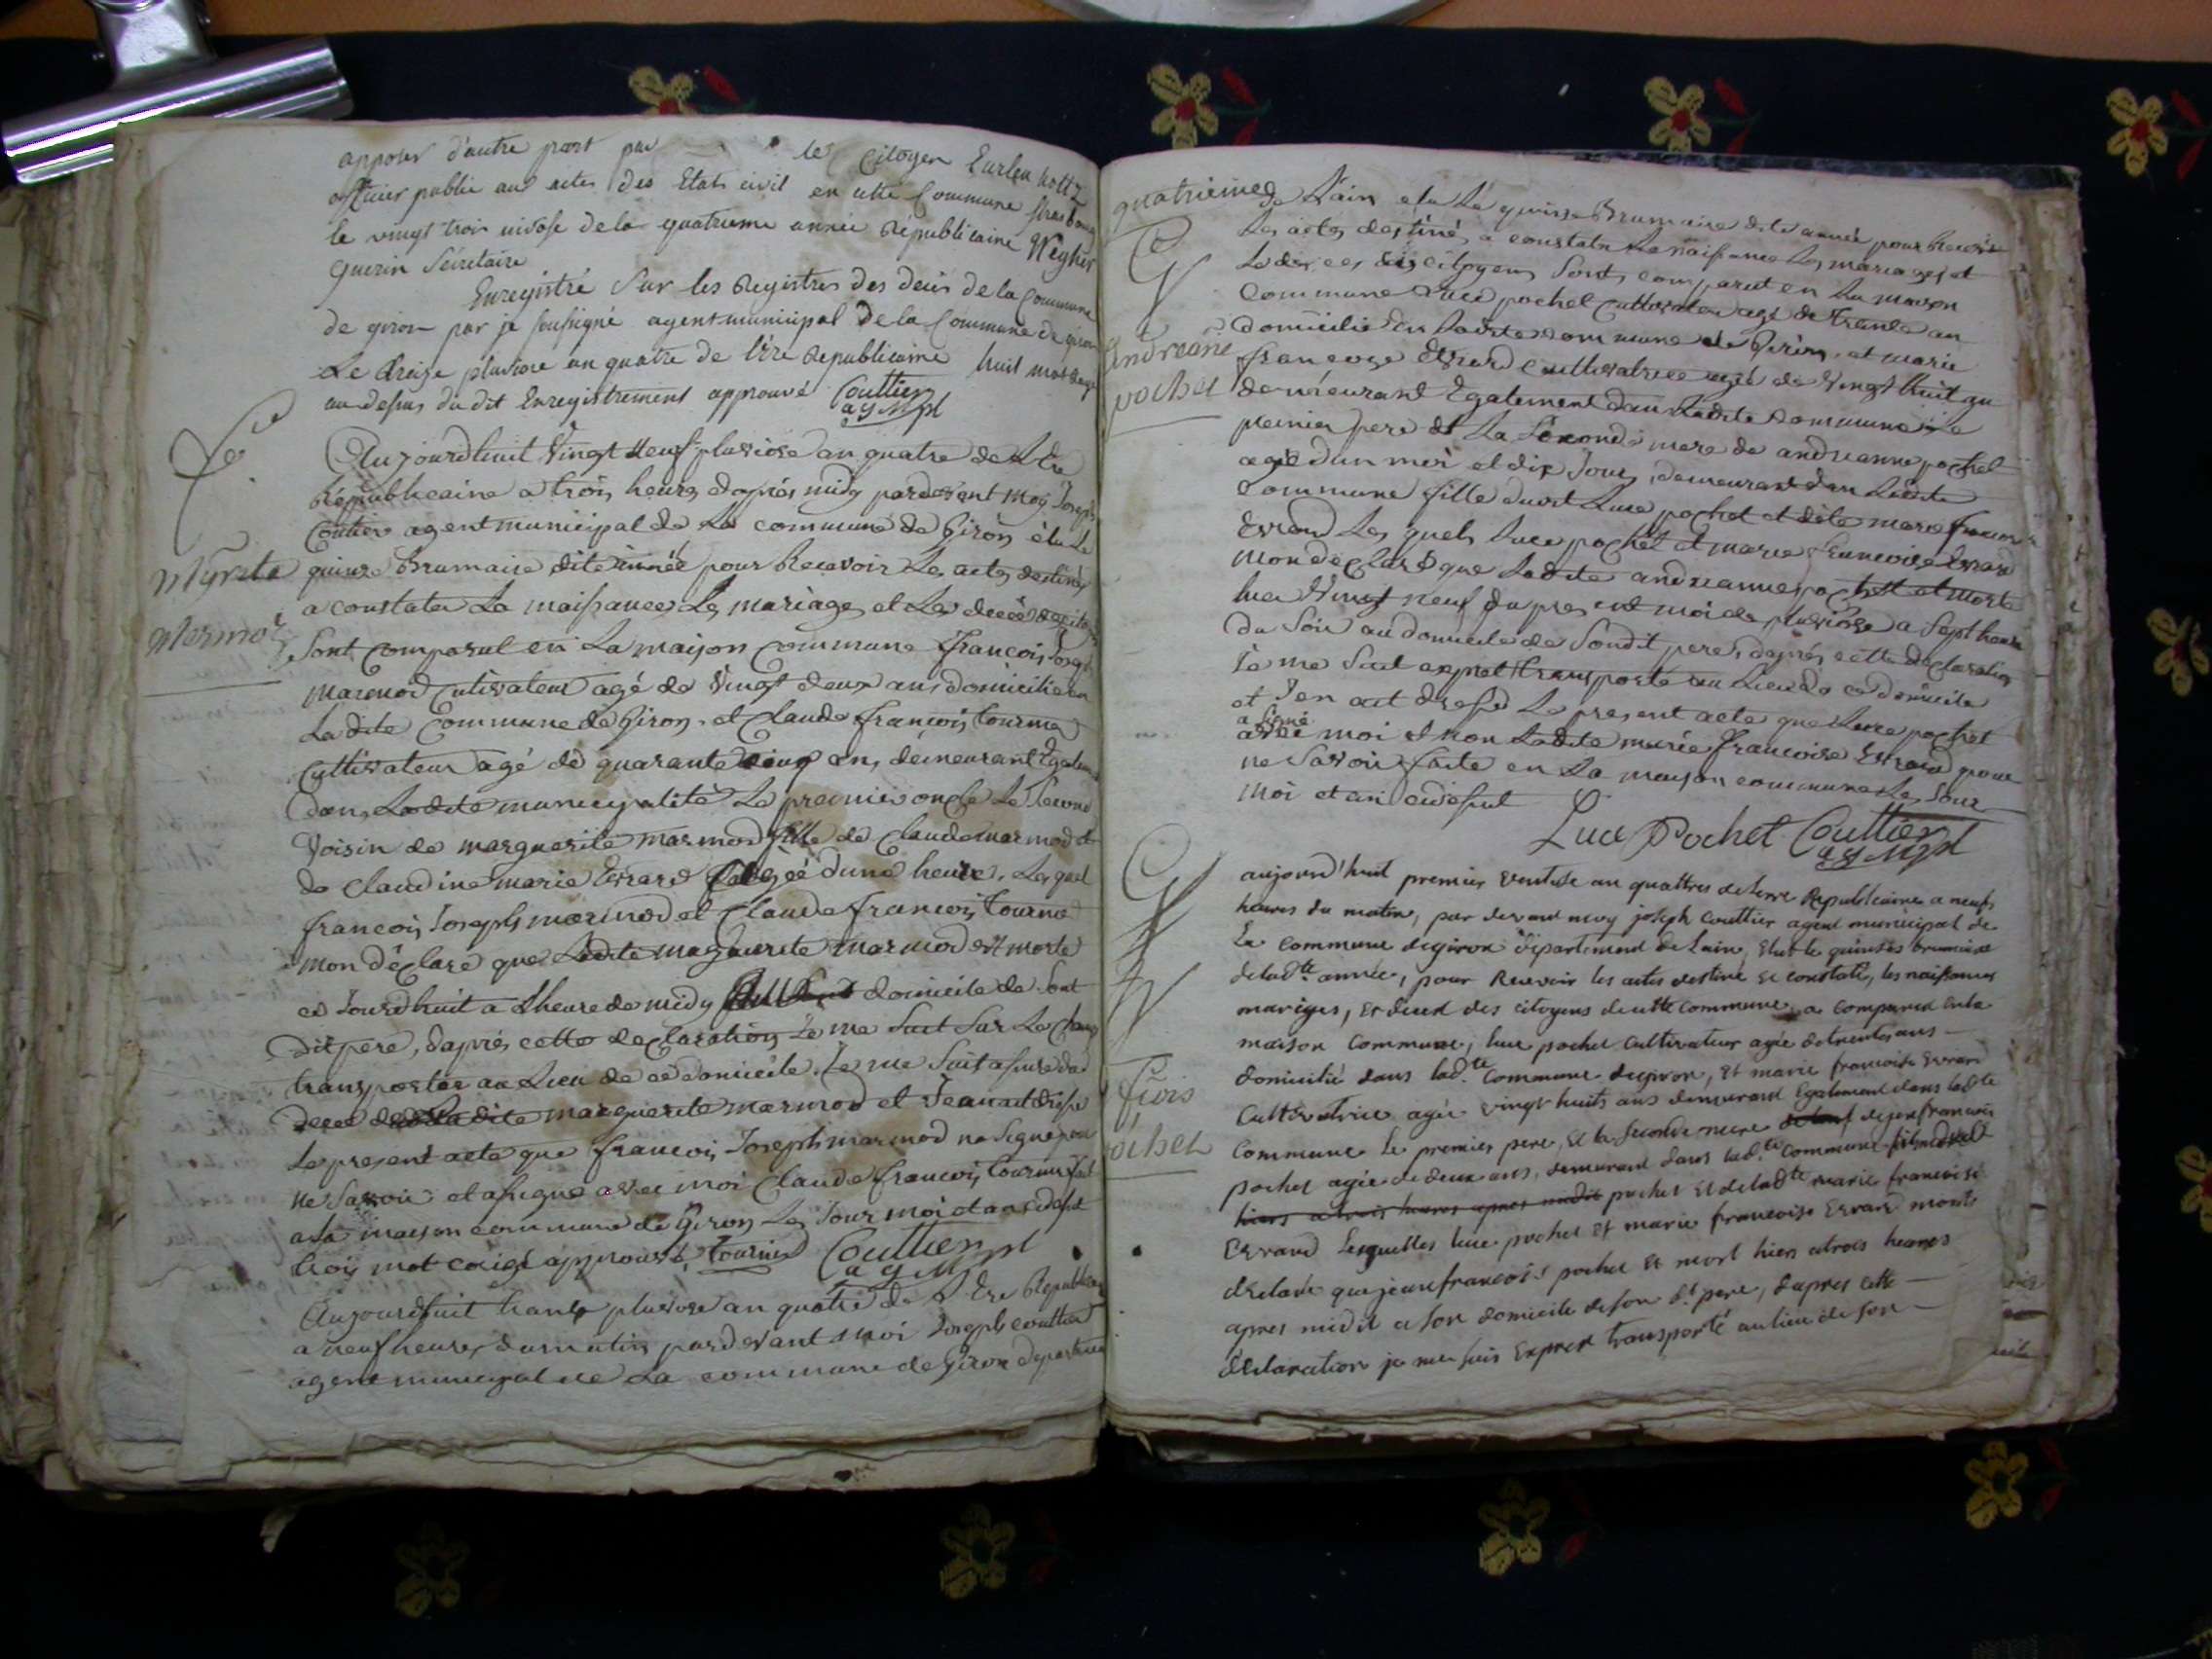 apposer d'autre part par le Citoyen Eurlen holtz
officier public aux actes des Etats civil en cette Commune Strasbourg
le vingt trois nivose de la quatrieme année Républicaine
guerin Sécrétaire
Enregistré Sur les Registres des decès de la Commune
de giron par je soussigné agent municipal de la Commune de giron
Le treize pluviose an quatre de l'ère Republicaine huit mots rayé
au desus du dit Enregistrement approuvé Couttier
ag Mpl
Aujourdhuit Vingt neuf pluviose an quatre de L Ere
Républicaine a trois heures daprés midy pardevent moy Joseph
Coutier agent municipal de La commune de Giron élu Le
Myrite
quinse Brumaire dite année pour Recevoir Les actes destinés
a constater La naissance Les mariages et Les decès
Mermod
Sont Comparut en La maison Commune francois Joseph
Marmod Cutivateur agé de Vingt deux ans domicilié en
Ladite Commune de Giron et Claude francois tournier
Cultivateur agé de quarante cinq ans, demeurant Egalement
dans Ladite municipalité Le premier oncle Le Second
Voisin de marguerite marmod fille de Claude marmod et
de Claudine marie Evrard agéé d'une heure, Les quel
francois Joseph marmod et Claude francois tournier
mon déclaré que Ladite marguerite marmod est morte
ce Jourdhuit a Lheure de midy domicile de Sont
dit pere, d'aprés cette declaration Je me Suit Sur Le Champ
transporter au Lieu de ce domicile. Je me Suit assuré du
decé de Ladite marguerite marmod et J'en ait dressé
Le present acte que francois Joseph marmod na Signé pour
ne Savoir et a signé avec moi Claude francois tournier fait
a La maison commune de Giron Les Jour moi et an cidesut
troy mot corigé approuvé, tournier Couttier
ag Mpl
Aujourdhuit trante pluviose an quatre de L Ere Republicaine
a neuf heures du matin pardevant moi Joseph couttier
agent municipal de La commune de Giron departement
quatrieme
de L'ain elu Le quinse Brumaire dite année pour Recevoir
Les actes destinés a constater Le naissance Les mariages et
Le decès des citoyens Sont comparut en La maison
Commune Luce pochet Cultivateur agé de trente an
andreane
domicilié dans Ladite commune de Giron, et marie
francoise Evrard Cultivatrice agé de Vingt huit an
pochet
demeurant Egalement dans Ladite commune Le
premier pere et La Seconde mere de andreanne pochet
agée d'un moi et dix Jours, demeurant dans Ladite
Commune fille dudit Luce pochet et dite marie francoise
Evrard Les quels Luce pochet et marie francoise Evrard
mon declaré que Ladite andreanne pochet et morte
hier Vingt neuf du present moi de pluviose a Sept heure
du Soir au domicile de Sondit pere, daprés cette declaration
Je me Suit expret transporté au Lieu de ce domicile
et J'en ait dressé Le present acte que Luce pochet
a signé
avec moi et non Ladite marie francoise Evrard pour
ne Savoir faite en La maison commune Les Jour
moi et an cidesut
Luce Pochet Couttier
ag Mpl
aujourd'huit premier ventose an quattres de lerre Republicaine a neufs
heures du matin, par devant moy joseph Couttier agent municipal de
La Commune degiron département de Lain, Elut le quinses brumaire
delad.te année, pour Recevoir les actes destiné et constaté, les naissances
mariges, et decest des citoyens de cette commune, a comparut en la
maison Commune, luce pochet Cultivateur agée detrentes ans
domicilié dans lad.te Commune degiron, et marie francoise Evrard
fçois
Cultivatrice agée vingt huits ans demeurant Egalement dans ladte
Commune Le premier pere, et la seconde mere dejeanfrancois
pochet
pochet agée de deux ans, demeurant dans lad.te Commune fils
hiers a trois heures apres midit pochet et deladte marie francoise
Evrard Lesquelles luce pochet et marie francoise Evrard mont
déclaré que jeanfrancois pochet et mort hiers a trois heures
apres midit a son domicile deson d.t pere, dapres cette
déclaration je me suis Exprex transporté au lieu de son